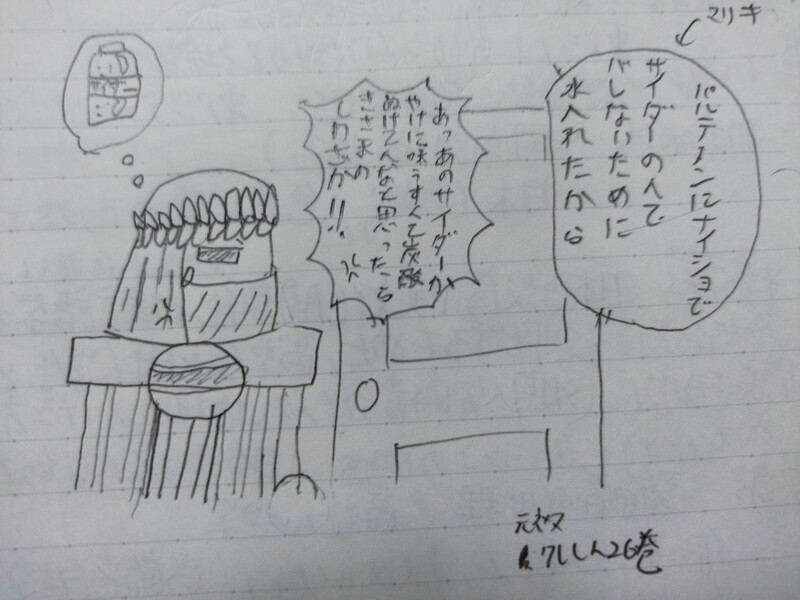 マリキ
パルテノンにナイショで
サイダーのんで
バレないために
水入れたから
あっあのサイダーが
やけに味うすくて炭酸
ぬけてんなと思ったら
きさまの
しわざか!!
サイダー
元ネタ
クレしん26巻